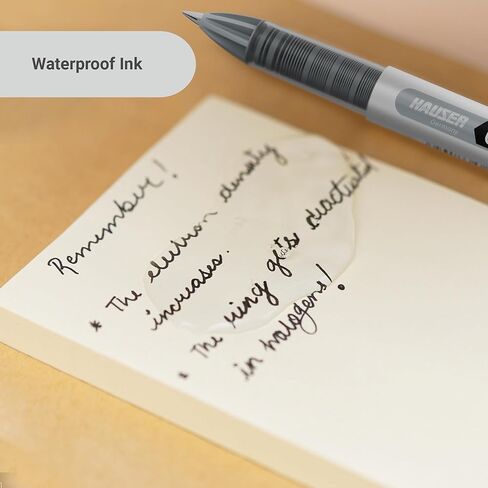 Waterproof Ink
HAUSER
Germany
Remember!
* The electron density
increases.
* The ring gets deactivated
in halogens!